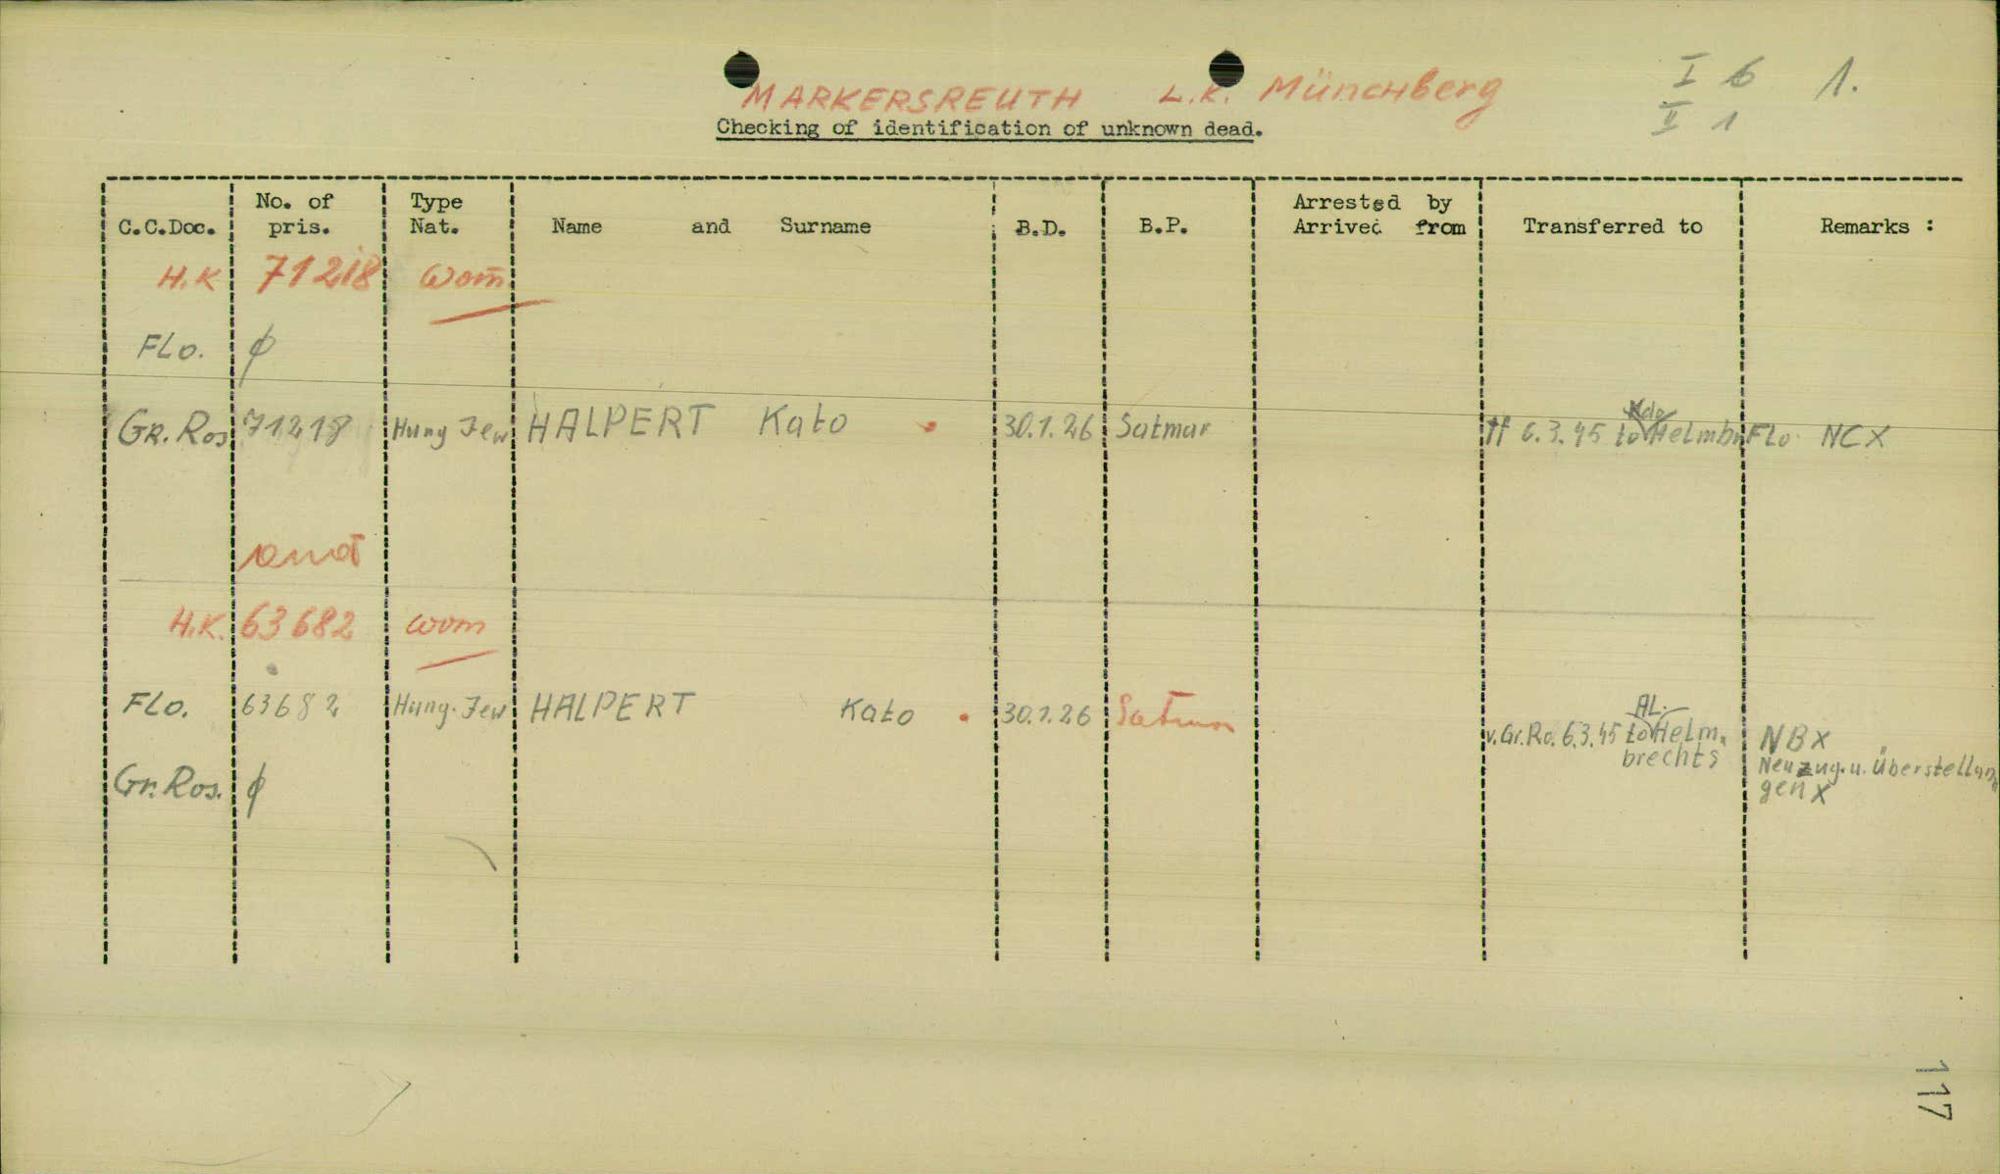 I 6 1.
MARKERSREUTH L.K. Münchberg
II 1
Checking of identification of unknown dead.
C.C.Doc. No. of pris. Type Nat. Name and Surname B.D. B.P. Arrested by Arrived from Transferred to Remarks :
H.K 71218 Wom
FLO. ϕ
GR. Ros 71218 Hung Jew HALPERT Kato 30.1.26 Satmar 6.3.45 to Kdo Helmbr. Flo NCX
and
H.K. 63682 wom
FLO. 63682 Hung. Jew HALPERT Kato 30.1.26 Satmar v. Gr.Ro. 6.3.45 to AL. Helm.
brechts
NBX
Neuzug. u. Überstellun
gen X
Gr. Ros. ϕ
117